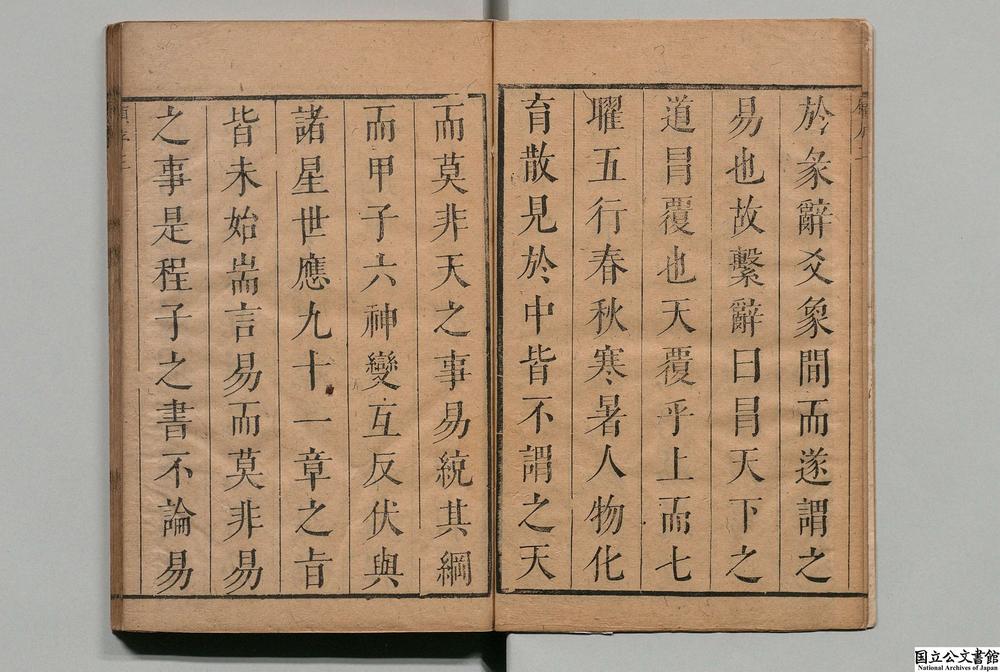 於彖辭爻象間而遂謂之
易也故繫辭曰冒天下之
道冒覆也天覆乎上而七
曜五行春秋寒暑人物化
育散見於中皆不謂之天
而莫非天之事易統其綱
而甲子六神變互反伏與
諸星世應九十一章之旨
皆未始耑言易而莫非易
之事是程子之書不論易
国立公文書館
National Archives of Japan